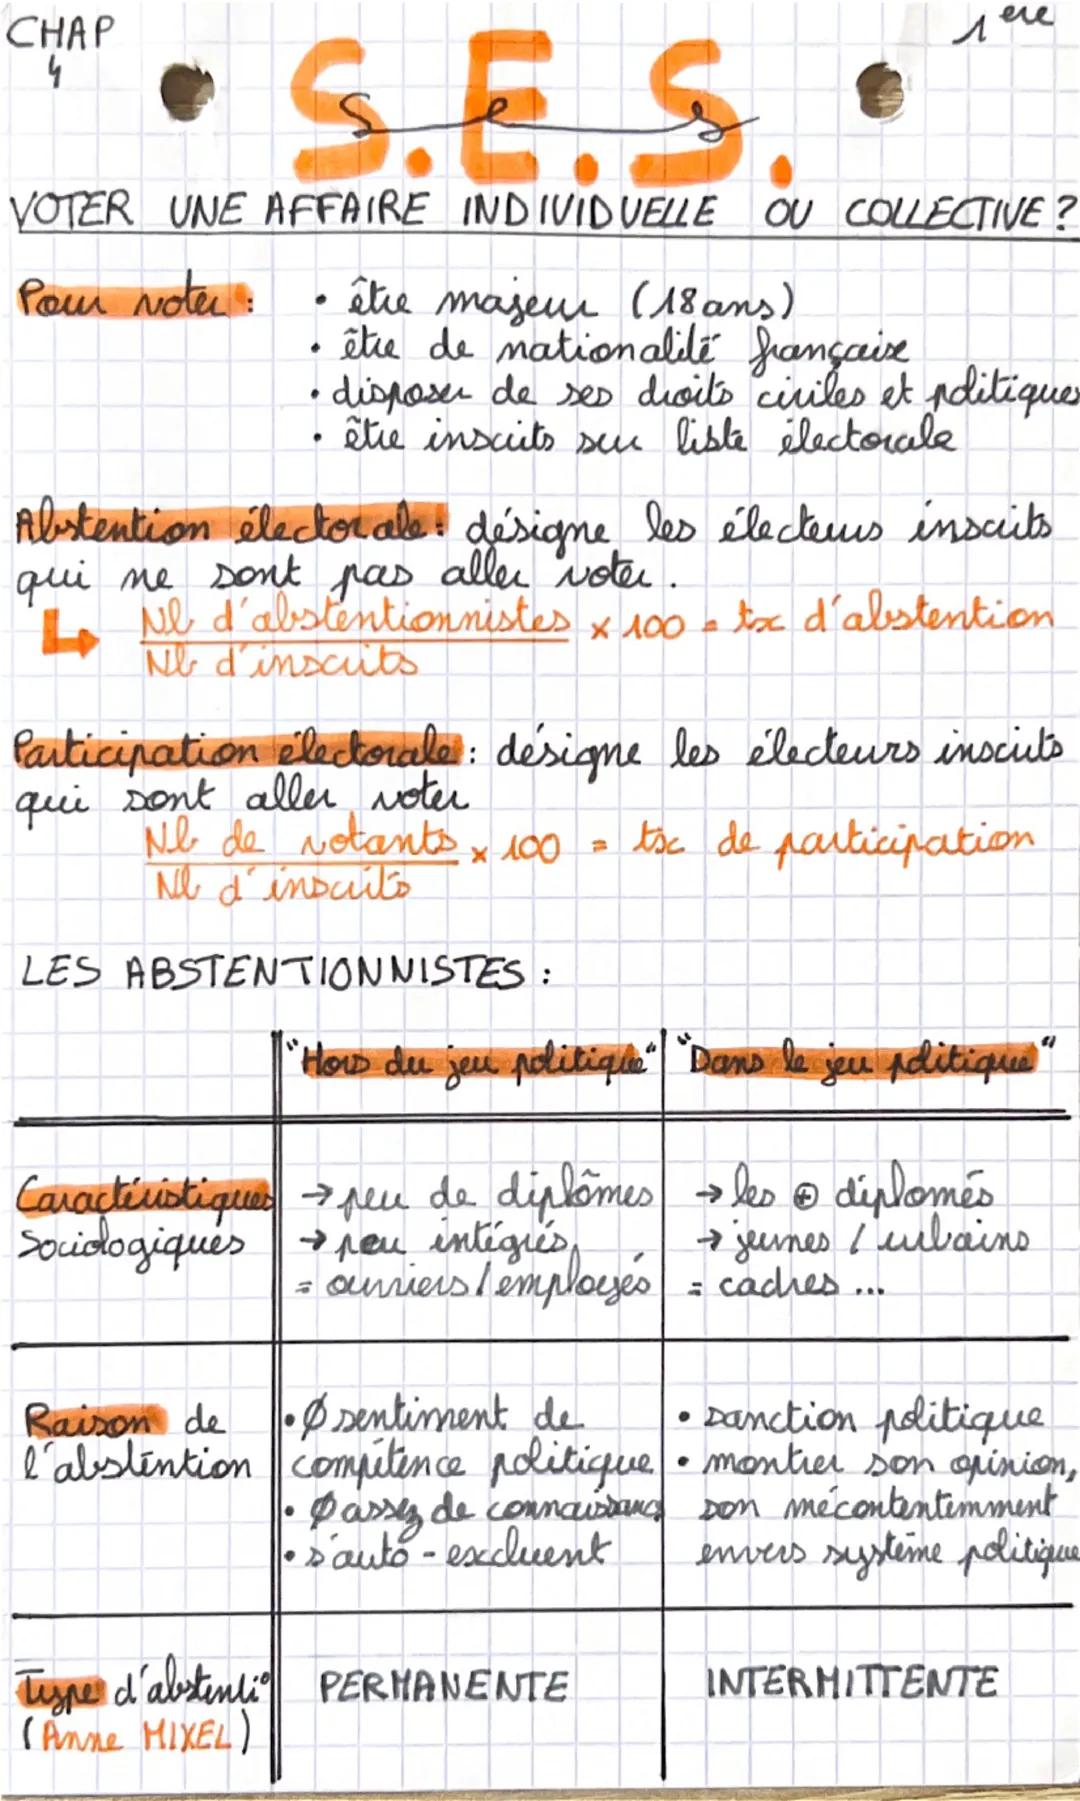 CHAP
4
1ere
S.E.S.
ses
VOTER UNE AFFAIRE INDIVIDUELLE OU COLLECTIVE ?
Pour voter :
• être majeur (18 ans)
• être de nationalité française
• disposer de ses droits civiles et politiques
• être inscrits sur liste électorale
Abstention électorale : désigne les électeurs inscrits
qui ne sont pas aller voter.
↳ Nb d'abstentionnistes x 100 = tx d'abstention
Nb d'inscrits
Participation électorale : désigne les électeurs inscrits
qui sont aller voter
Nb de votants x 100 = tx de participation
Nb d'inscrits
LES ABSTENTIONNISTES :
"Hors du jeu politique"
"Dans le jeu politique"
Caractéristiques
Sociologiques
→ peu de diplômes
→ peu intégrés
= ouvriers / employés
→ les ⊕ diplomés
→ jeunes / urbains
= cadres ...
Raison de
l'abstention
• Ø sentiment de
compétence politique
• Ø assez de connaissance
• s'auto-excluent
• sanction politique
• montrer son opinion,
son mécontentemment
envers système politique
Type d'abstenti°
(Anne MIXEL)
PERMANENTE
INTERMITTENTE